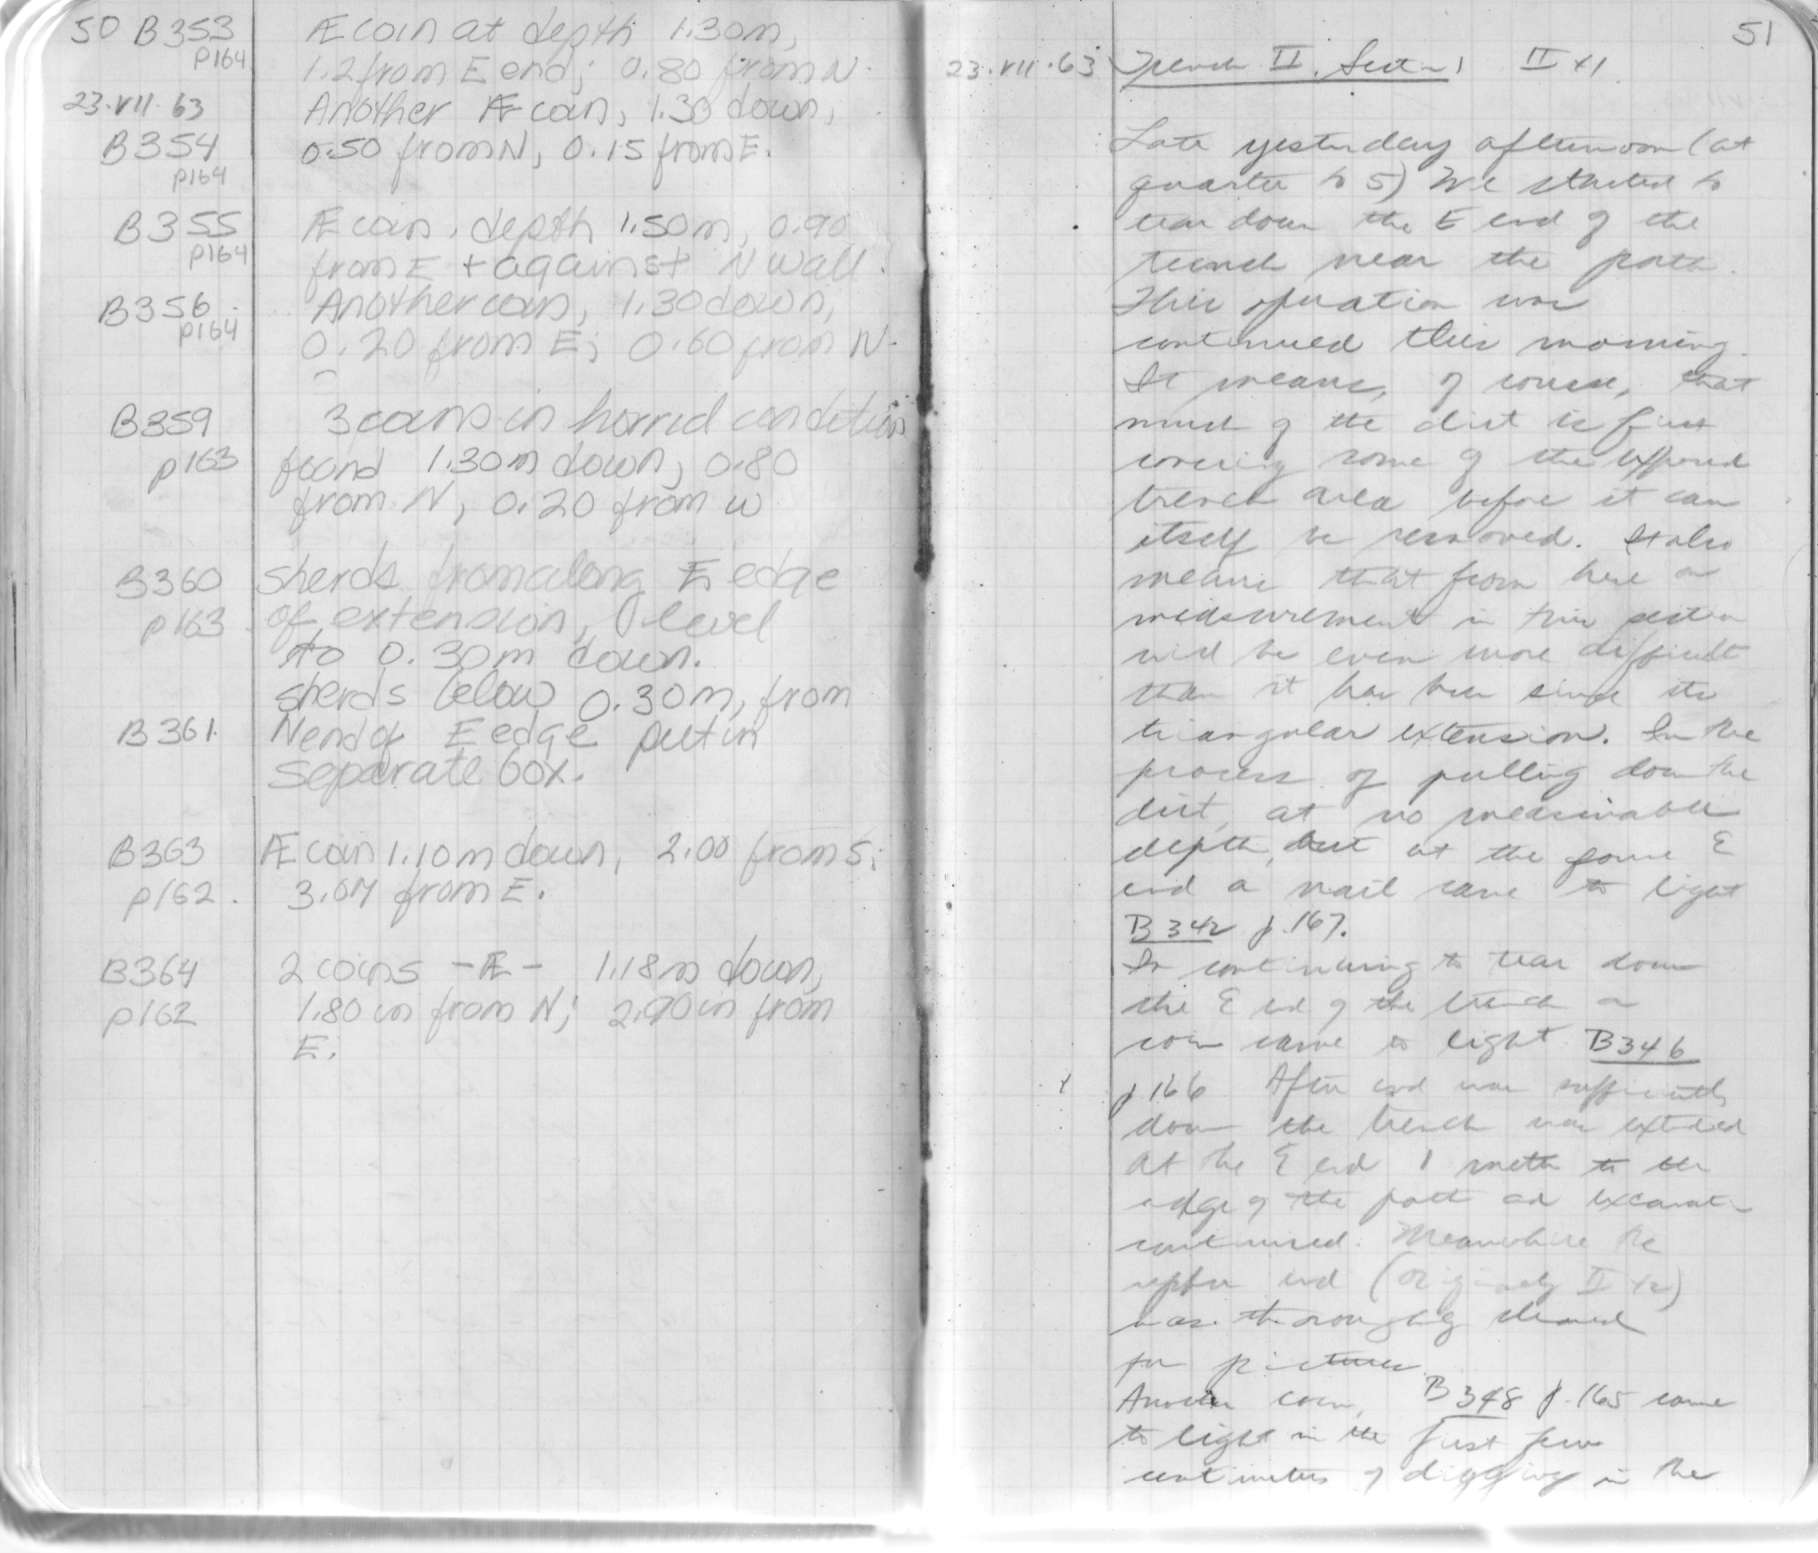 50 B353 Æ coin at depth 1.30m,
p164 1.2 from E end; 0.80 from N.
23.VII.63 Another Æ coin, 1.30 down,
B354 0.50 from N, 0.15 from E.
p164
B355 Æ coin, depth 1.50m, 0.90
p164 from E + against N wall.
B356 Another coin, 1.30 down,
p164 0.20 from E; 0.60 from N.
B359 3 coins in horrid condition
p163 found 1.30m down, 0.80
from N, 0.20 from W
B360 sherds from along E edge
p163 of extension, level
to 0.30m down.
sherds below 0.30m, from
B361 N end of E edge put in
separate box.
B363 Æ coin 1.10m down, 2.00 from S;
p162. 3.07 from E.
B364 2 coins - Æ - 1.18m down,
p162 1.80 m from N; 2.90 m from
E.
51
23.VII.63 Trench II, Section 1 II x 1
Late yesterday afternoon (at
quarter to 5) we started to
tear down the E end of the
trench near the path.
This operation was
continued this morning.
It means, of course, that
much of the dirt is first
covering some of the exposed
trench area before it can
itself be removed. It also
means that from here on
measurement in this section
will be even more difficult
than it has been since its
triangular extension. In the
process of pulling down the
dirt, at no measurable
depth, but at the same E
end a nail came to light
B342 p.167.
In continuing to tear down
the E end of the trench a
coin came to light B346
p166 After end was sufficiently
down the trench was extended
at the E end 1 meter to the
edge of the path and excavation
continued. Meanwhile the
upper end (originally II x 2)
was thoroughly cleaned
for pictures.
Another coin, B348 p.165 came
to light in the first few
centimeters of digging in the